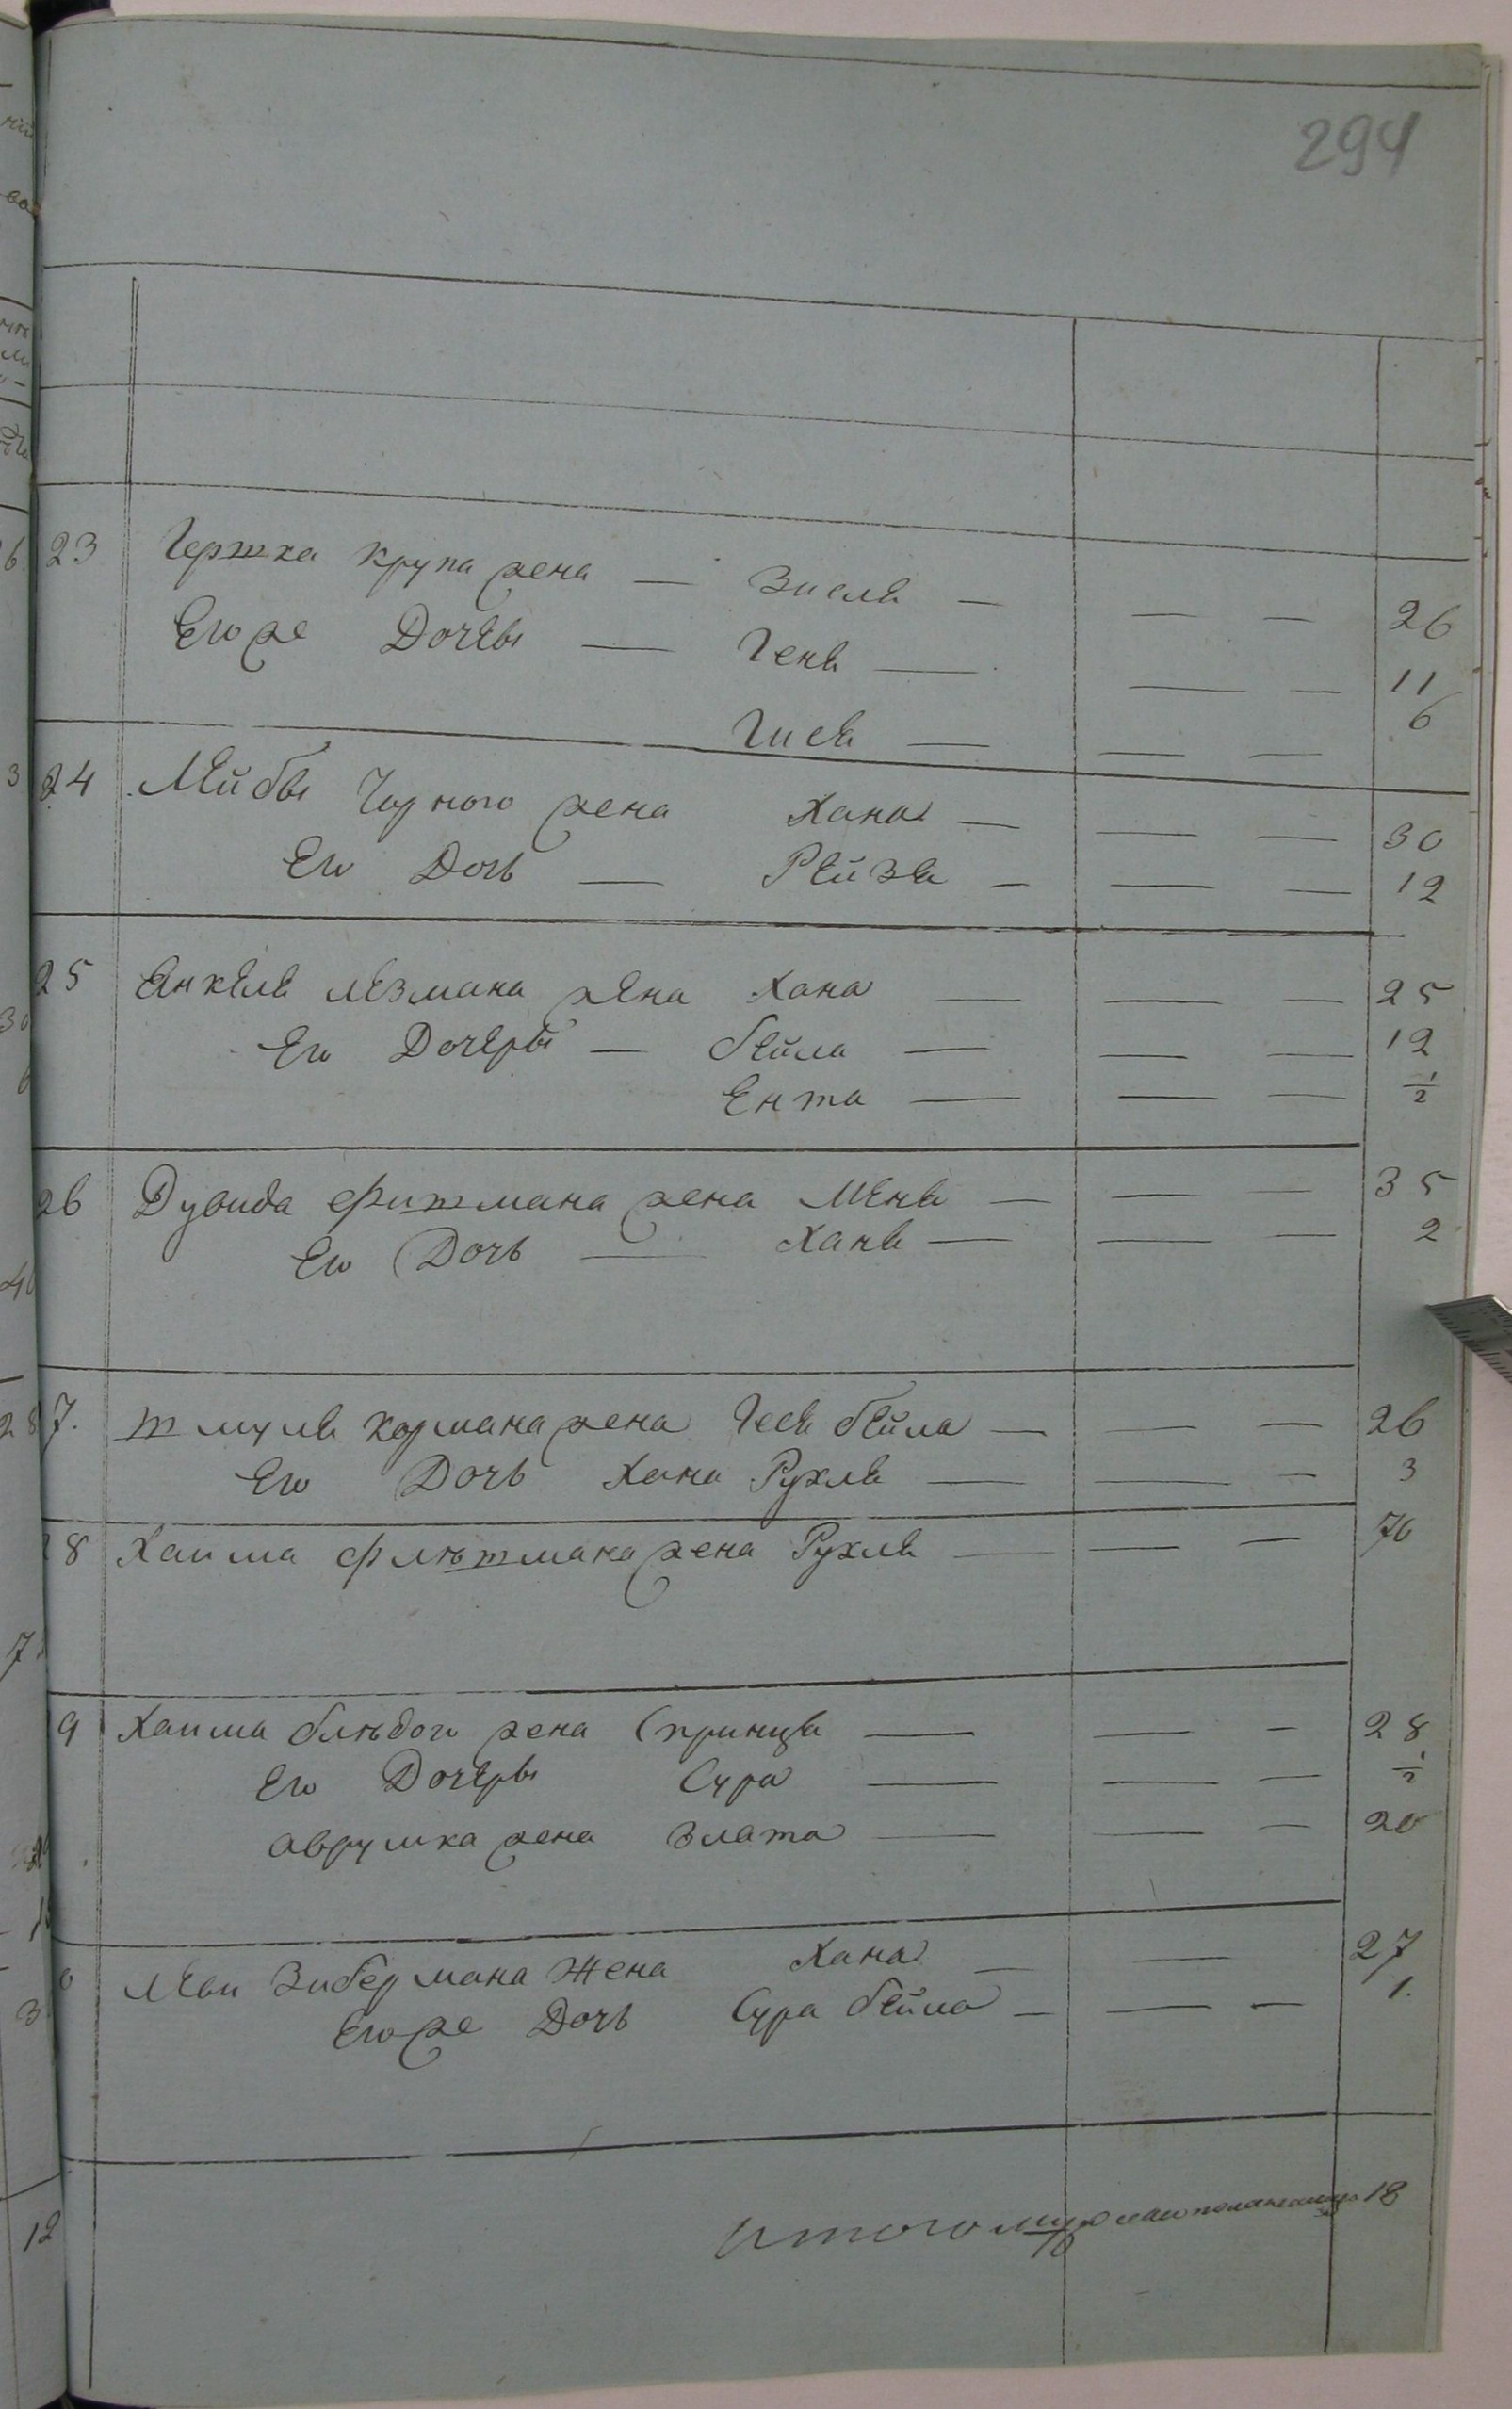 294
23 Гершка Крупа жена — Зисля — — — 26
Его же Дочеры — Геня — — — 11
Гися — — — 6
24 Лейбы Чорного жена Хана — — — 30
Его Дочь — Рейзя — — — 12
25 Янкеля Лезмана жена Хана — — — 25
Его Дочеры — Бейла — — — 12
Ента — — — 1/2
26 Дувида Фишмана жена Меня — — — 35
Его Дочь — Ханя — — — 2
7. Шмуля Кормана жена Геся Бейла — — — 26
Его Дочь Хана Рухля — — — 3
8 Хаима Флюшмана жена Рухля — — — 70
9 Хаима Блюбого жена Спринца — — — 28
Его Дочеры Сура — — — 1/2
Аврумка жена Злата — — — 20
0 Леви Зибермана Жена Хана — — 27
Его же Дочь Сура Бейла — — — 1.
Итого 18